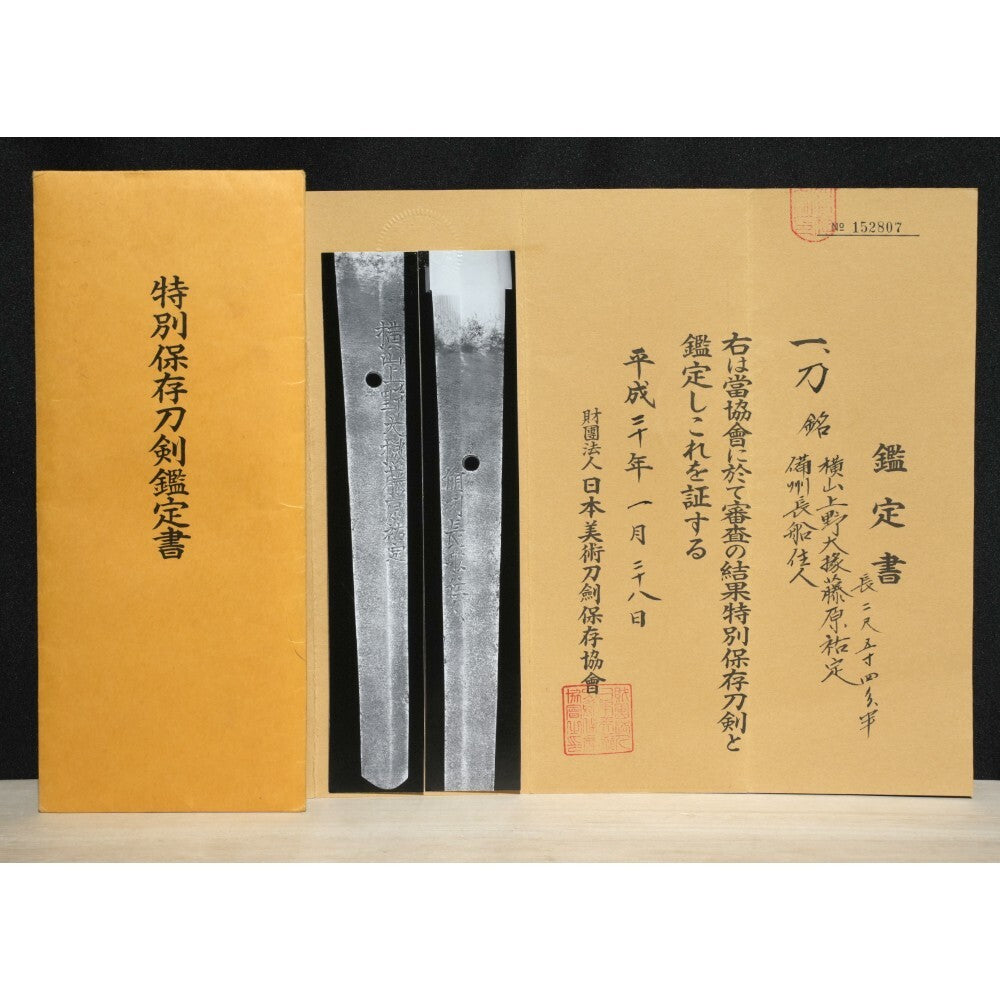 特別保存刀剣鑑定書
№ 152807
鑑定書
長二尺五寸四分半
一、刀 銘 横山上野大掾藤原祐定
備州長船住人
右は當協會に於て審査の結果特別保存刀剣と
鑑定しこれを証する
平成三十年一月二十八日
財團法人日本美術刀劍保存協會
横山上野大掾藤原祐定